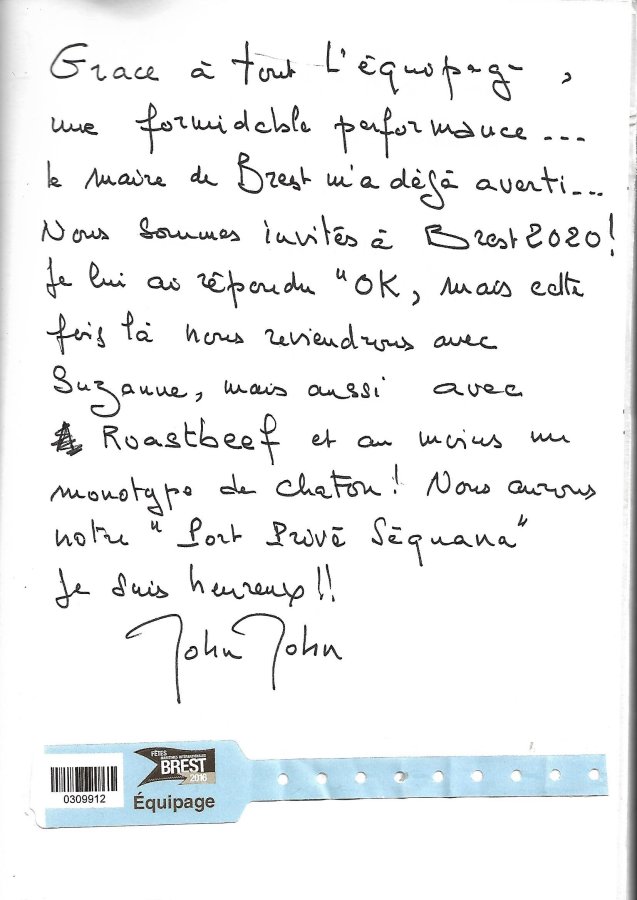 Grace à tout L'équipage,
une formidable performance...
le maire de Brest m'a déjà averti...
Nous sommes invités à Brest 2020!
Je lui ai répondu "OK, mais cette
fois là nous reviendrons avec
Suzanne, mais aussi avec
Roastbeef et au moins un
monotype de chaton! Nous aurons
notre "Port Privé Séquana"
Je suis heureux!!
John John
FÊTES
MARITIMES INTERNATIONALES
BREST
2016
0309912
Équipage